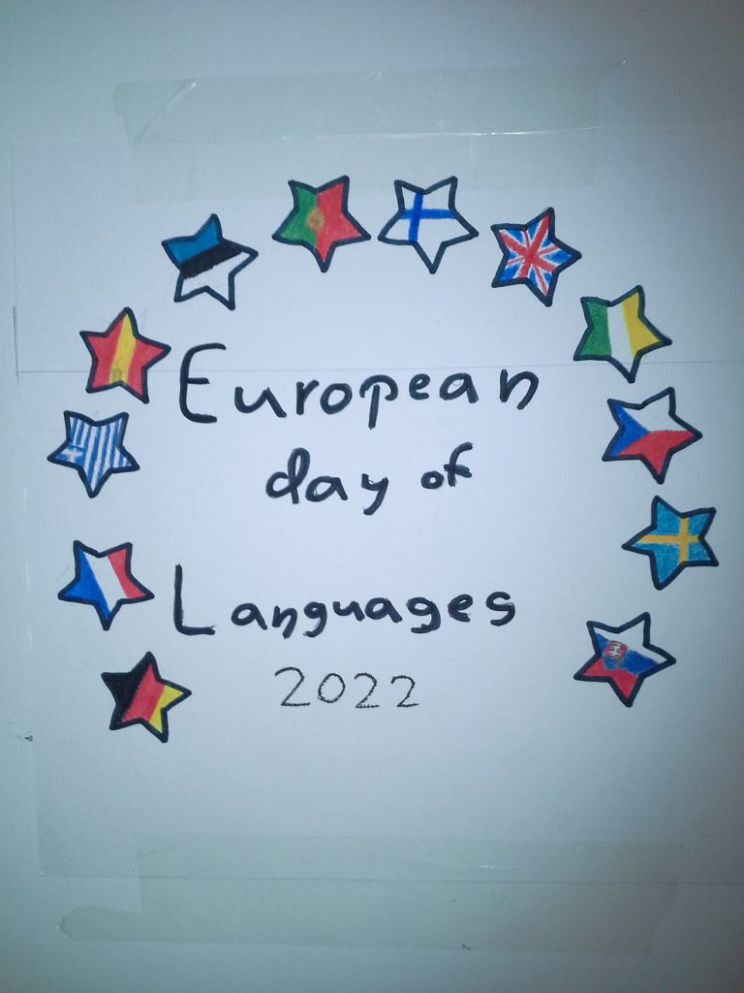 European
day of
Languages
2022